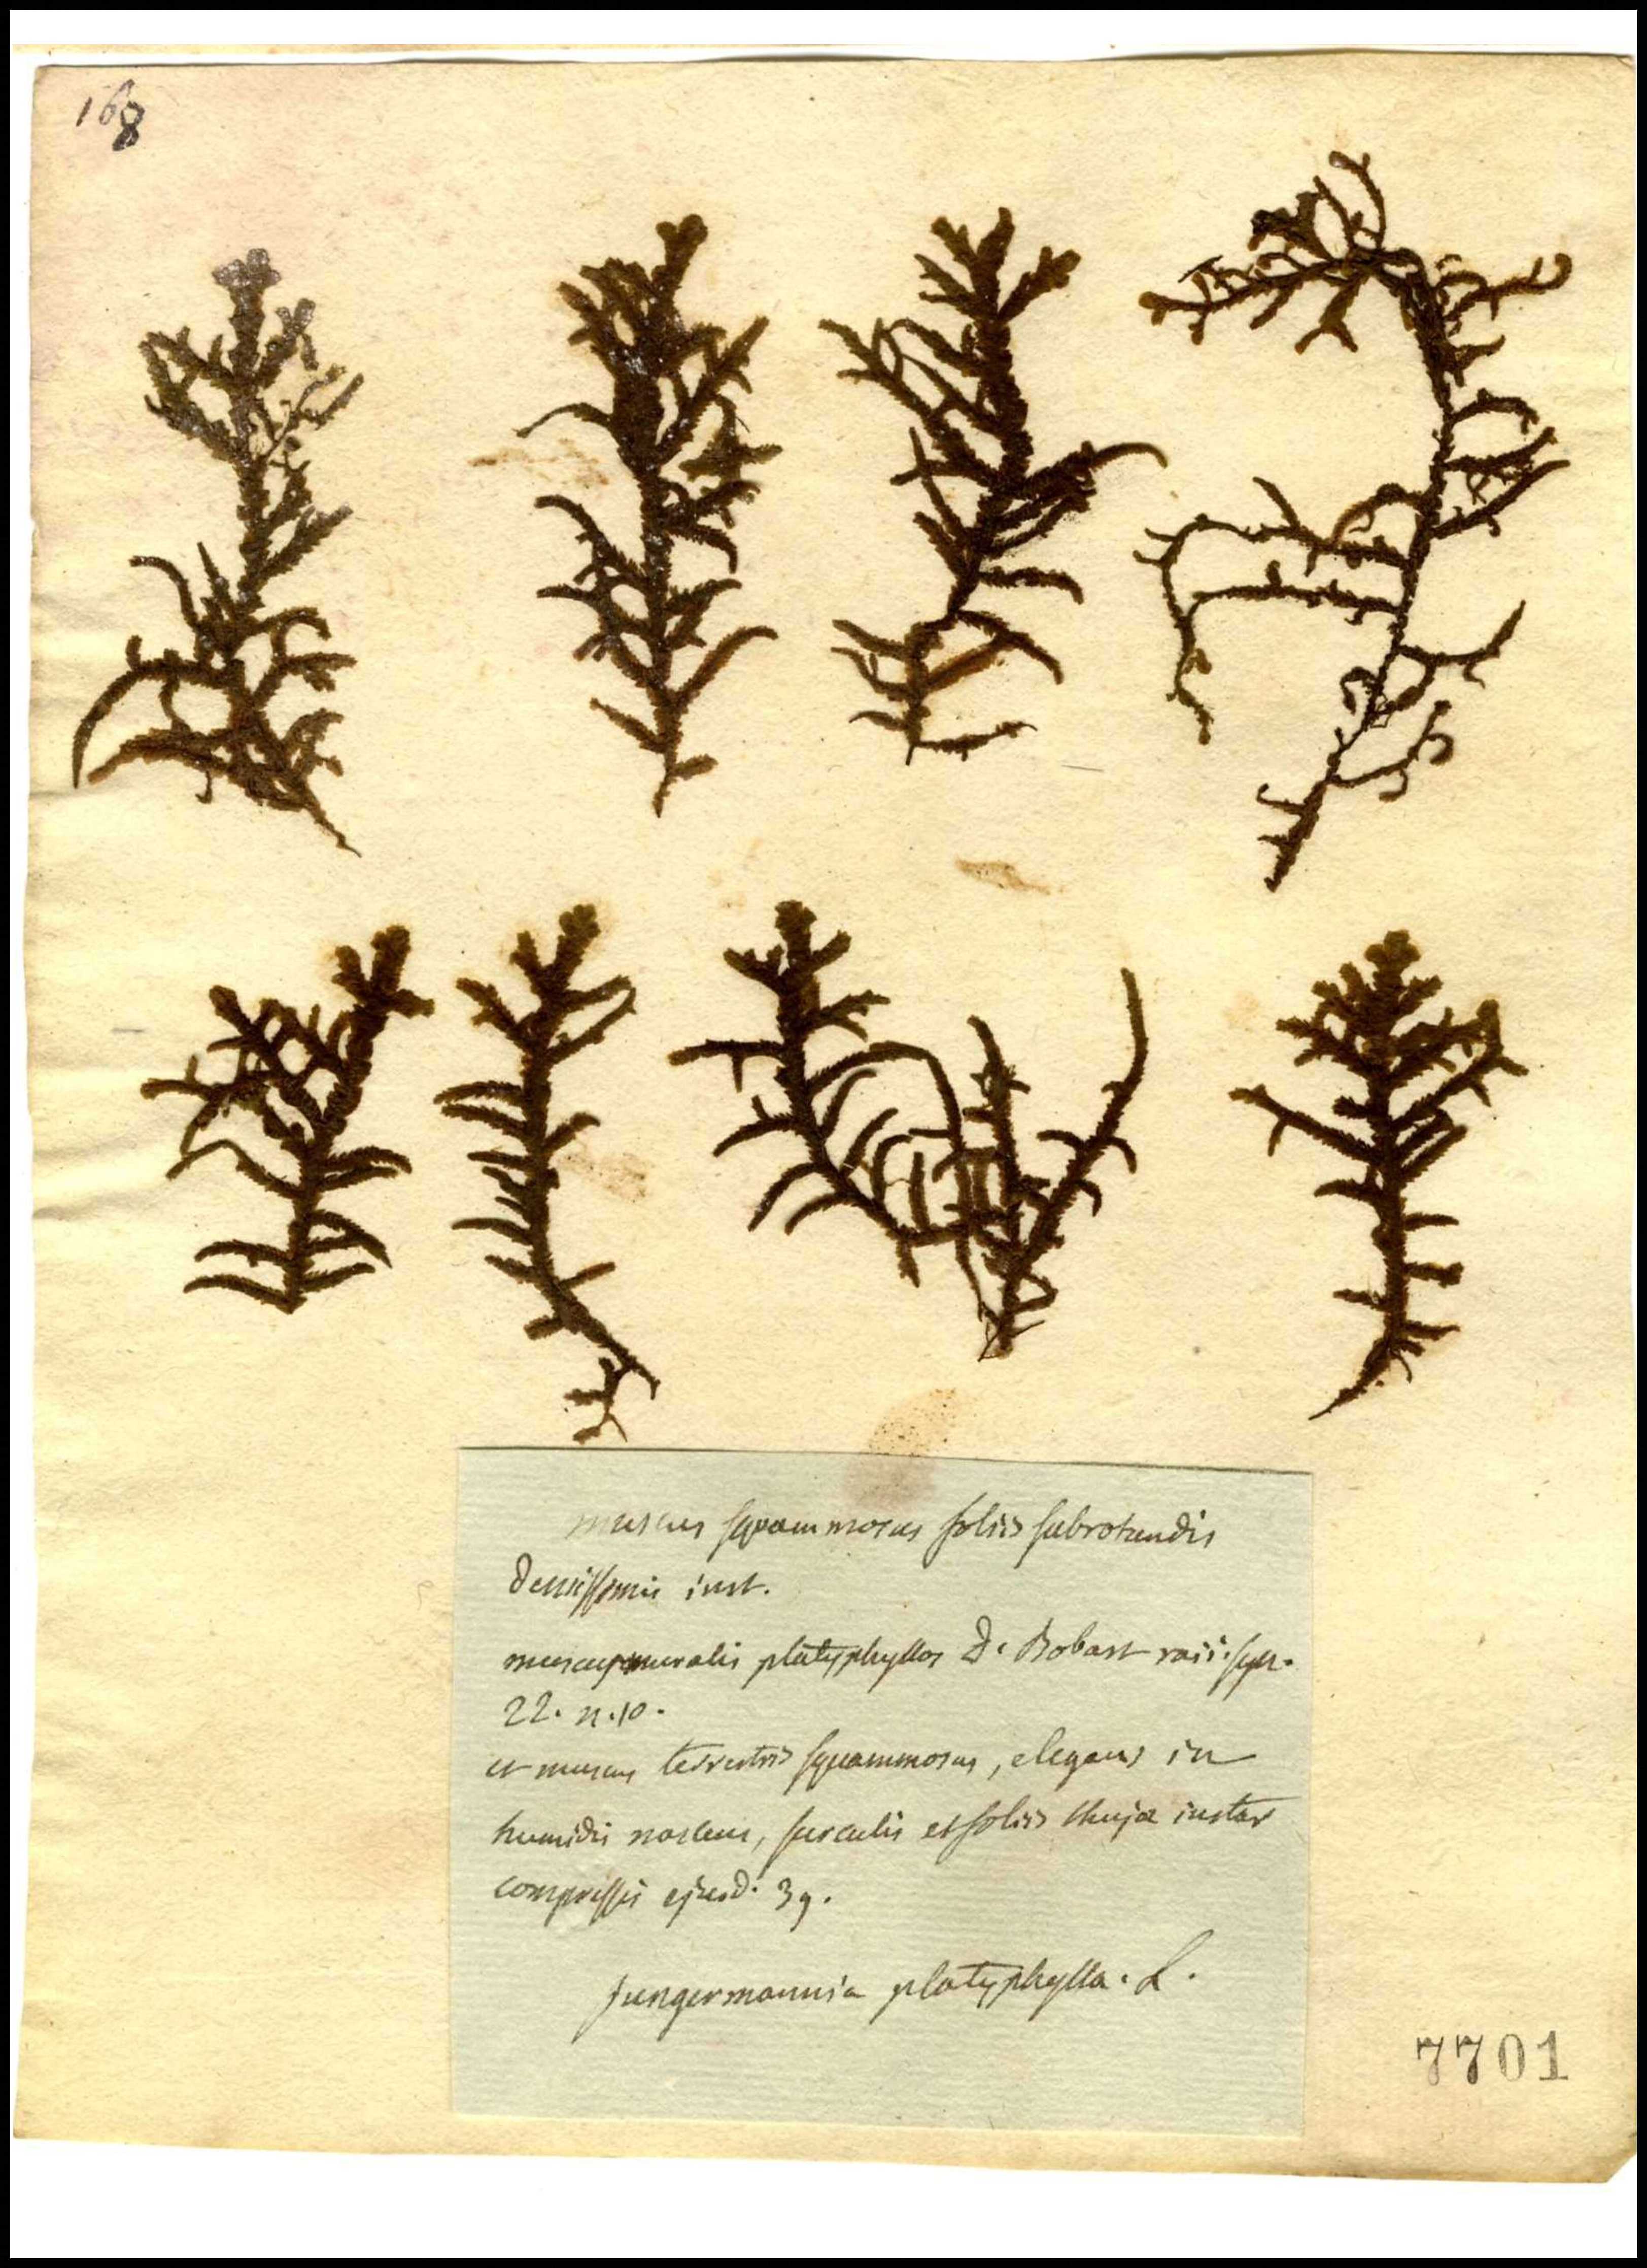 168
muscus squammosus foliis subrotundis
densissimis inst.
muscus muralis platyphyllos D. Bobart raii. syn.
22. n. 10.
et muscus terrestris squammosus, elegans in
humidis nascens, surculis et foliis thujæ instar
compressis ejusd. 39.
jungermannia platyphylla. L.
7701